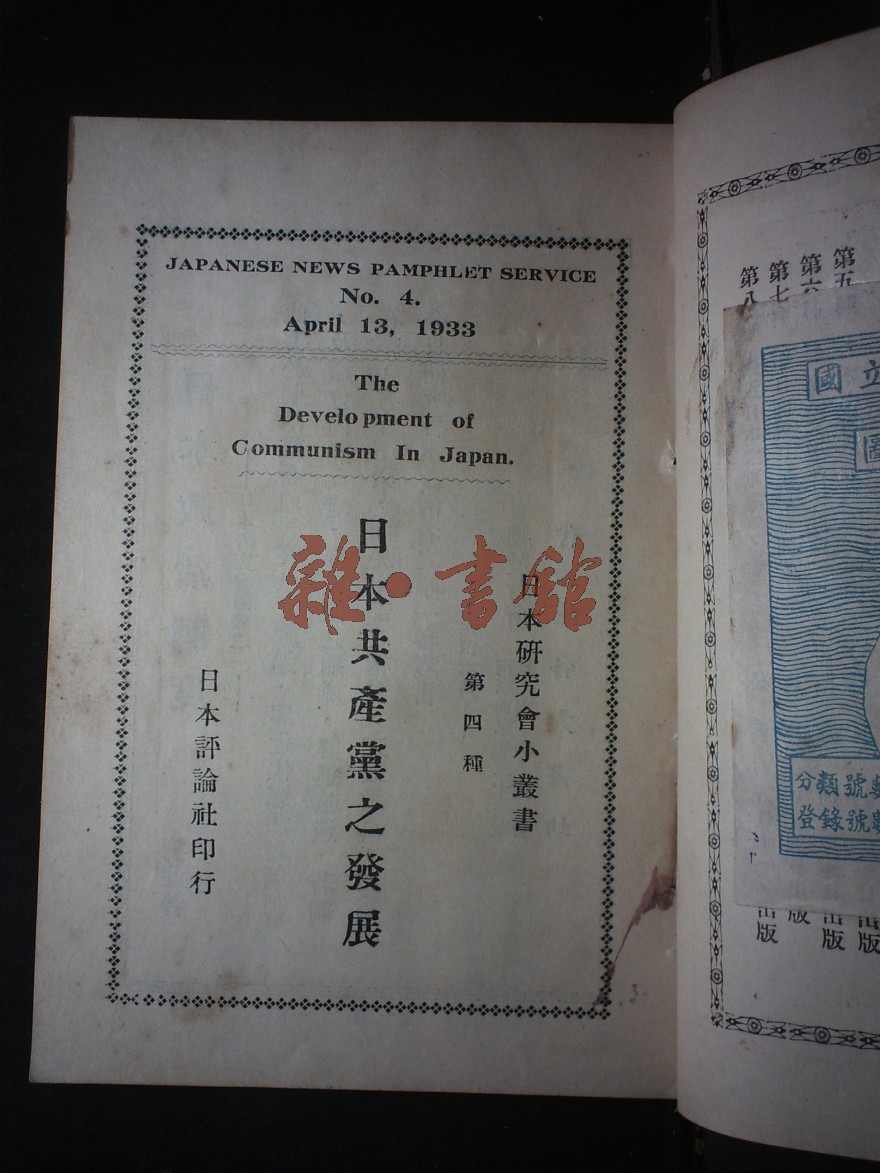 JAPANESE NEWS PAMPHLET SERVICE
No. 4.
April 13, 1933
The
Development of
Communism In Japan.
日本研究會小叢書
第四種
日本共產黨之發展
日本評論社印行
雜·書館
第五
第六
第七
第八
國立
圖
分類號數
登錄號數
出版
出版
版
出版